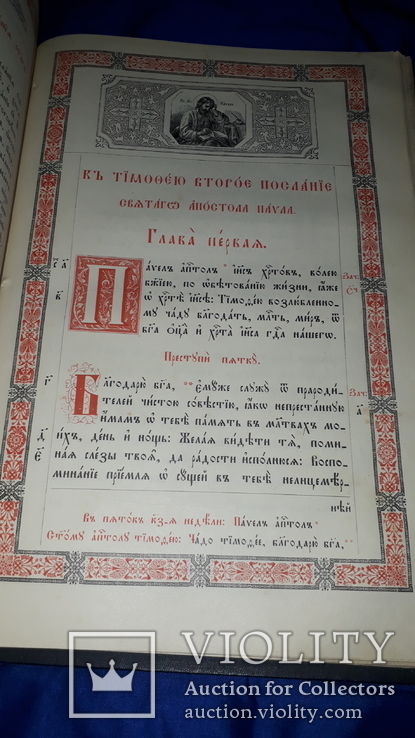 Къ тїмоѳею второе посланїе
свѧтагѡ апостола паѵла.
Глава первая.
Паѵелъ ап҃толъ і҃исъ хр҃товъ, волею
бж҃їею, по ѡбѣтованїю жизни, ꙗже
ѡ хр҃тѣ і҃исѣ: Тїмоѳею возлюбленно-
му чаду благодать, млⷭ҇ть, миръ, ѿ
бг҃а ѻц҃а и хр҃та і҃иса гдⷭ҇а нашегѡ.
Преступи пѧтку.
Благодарю бг҃а, ** емуже служу ѿ прароди-
телей чистою совѣстїю, ꙗкѡ непрестанную
имамъ ѡ тебѣ память въ мл҃твахъ мо-
ихъ, день и нощь: Желаѧ видѣти тѧ, поми-
наѧ слезы твоѧ, да радости исполнюсѧ: Воспо-
минанїе прїемлѧ ѡ сущей въ тебѣ нелицемѣр-
нѣй
Въ пѧтокъ к҃з-ѧ недѣли: Паѵелъ ап҃толъ
Ст҃ому ап҃толу тїмоѳею: Чадо тїмоѳее, благодарю бг҃а, **
VIOLITY
Auction for Collectors
auction.violity.com